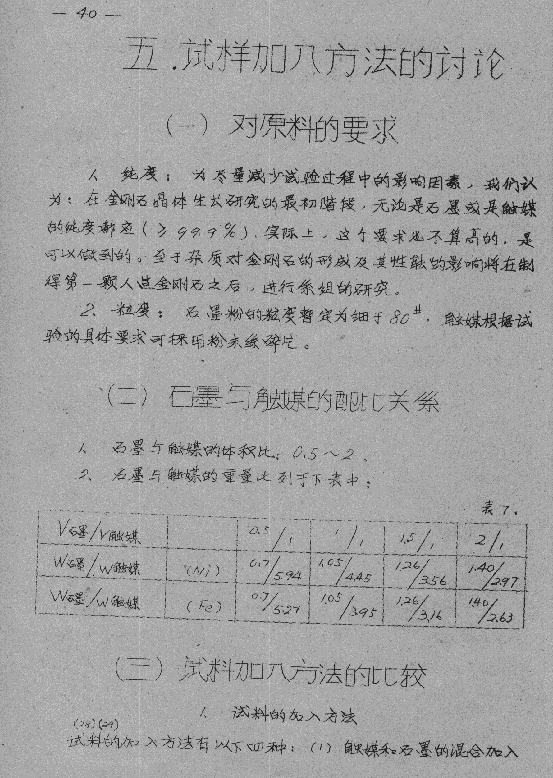 — 40 —
五.试样加入方法的讨论
(一) 对原料的要求
1. 纯度：为尽量减少试验过程中的影响因素，我们认
为：在金刚石晶体生长研究的最初阶段，无论是石墨或是触媒
的纯度都应(≥99.9%)。实际上，这个要求也不算高的，是
可以做到的。至于杂质对金刚石的形成及其性能的影响将在制
得第一颗人造金刚石之后，进行系组的研究。
2. 粒度：石墨粉的粒度暂定为细于80#，触媒根据试
验的具体要求可採用粉末或碎片。
(二) 石墨与触媒的配比关系
1. 石墨与触媒的体积比：0.5～2。
2. 石墨与触媒的重量比列于下表中：
表7.
V石墨/V触媒 0.5/1 1/1 1.5/1 2/1
W石墨/W触媒 (Ni) 0.7/5.94 1.05/4.45 1.26/3.56 1.40/2.97
W石墨/W触媒 (Fe) 0.7/5.27 1.05/3.95 1.26/3.16 1.40/2.63
(三) 试料加入方法的比较
1. 试料的加入方法
(28)(29)
试料的加入方法有以下四种：(1) 触媒和石墨的混合加入